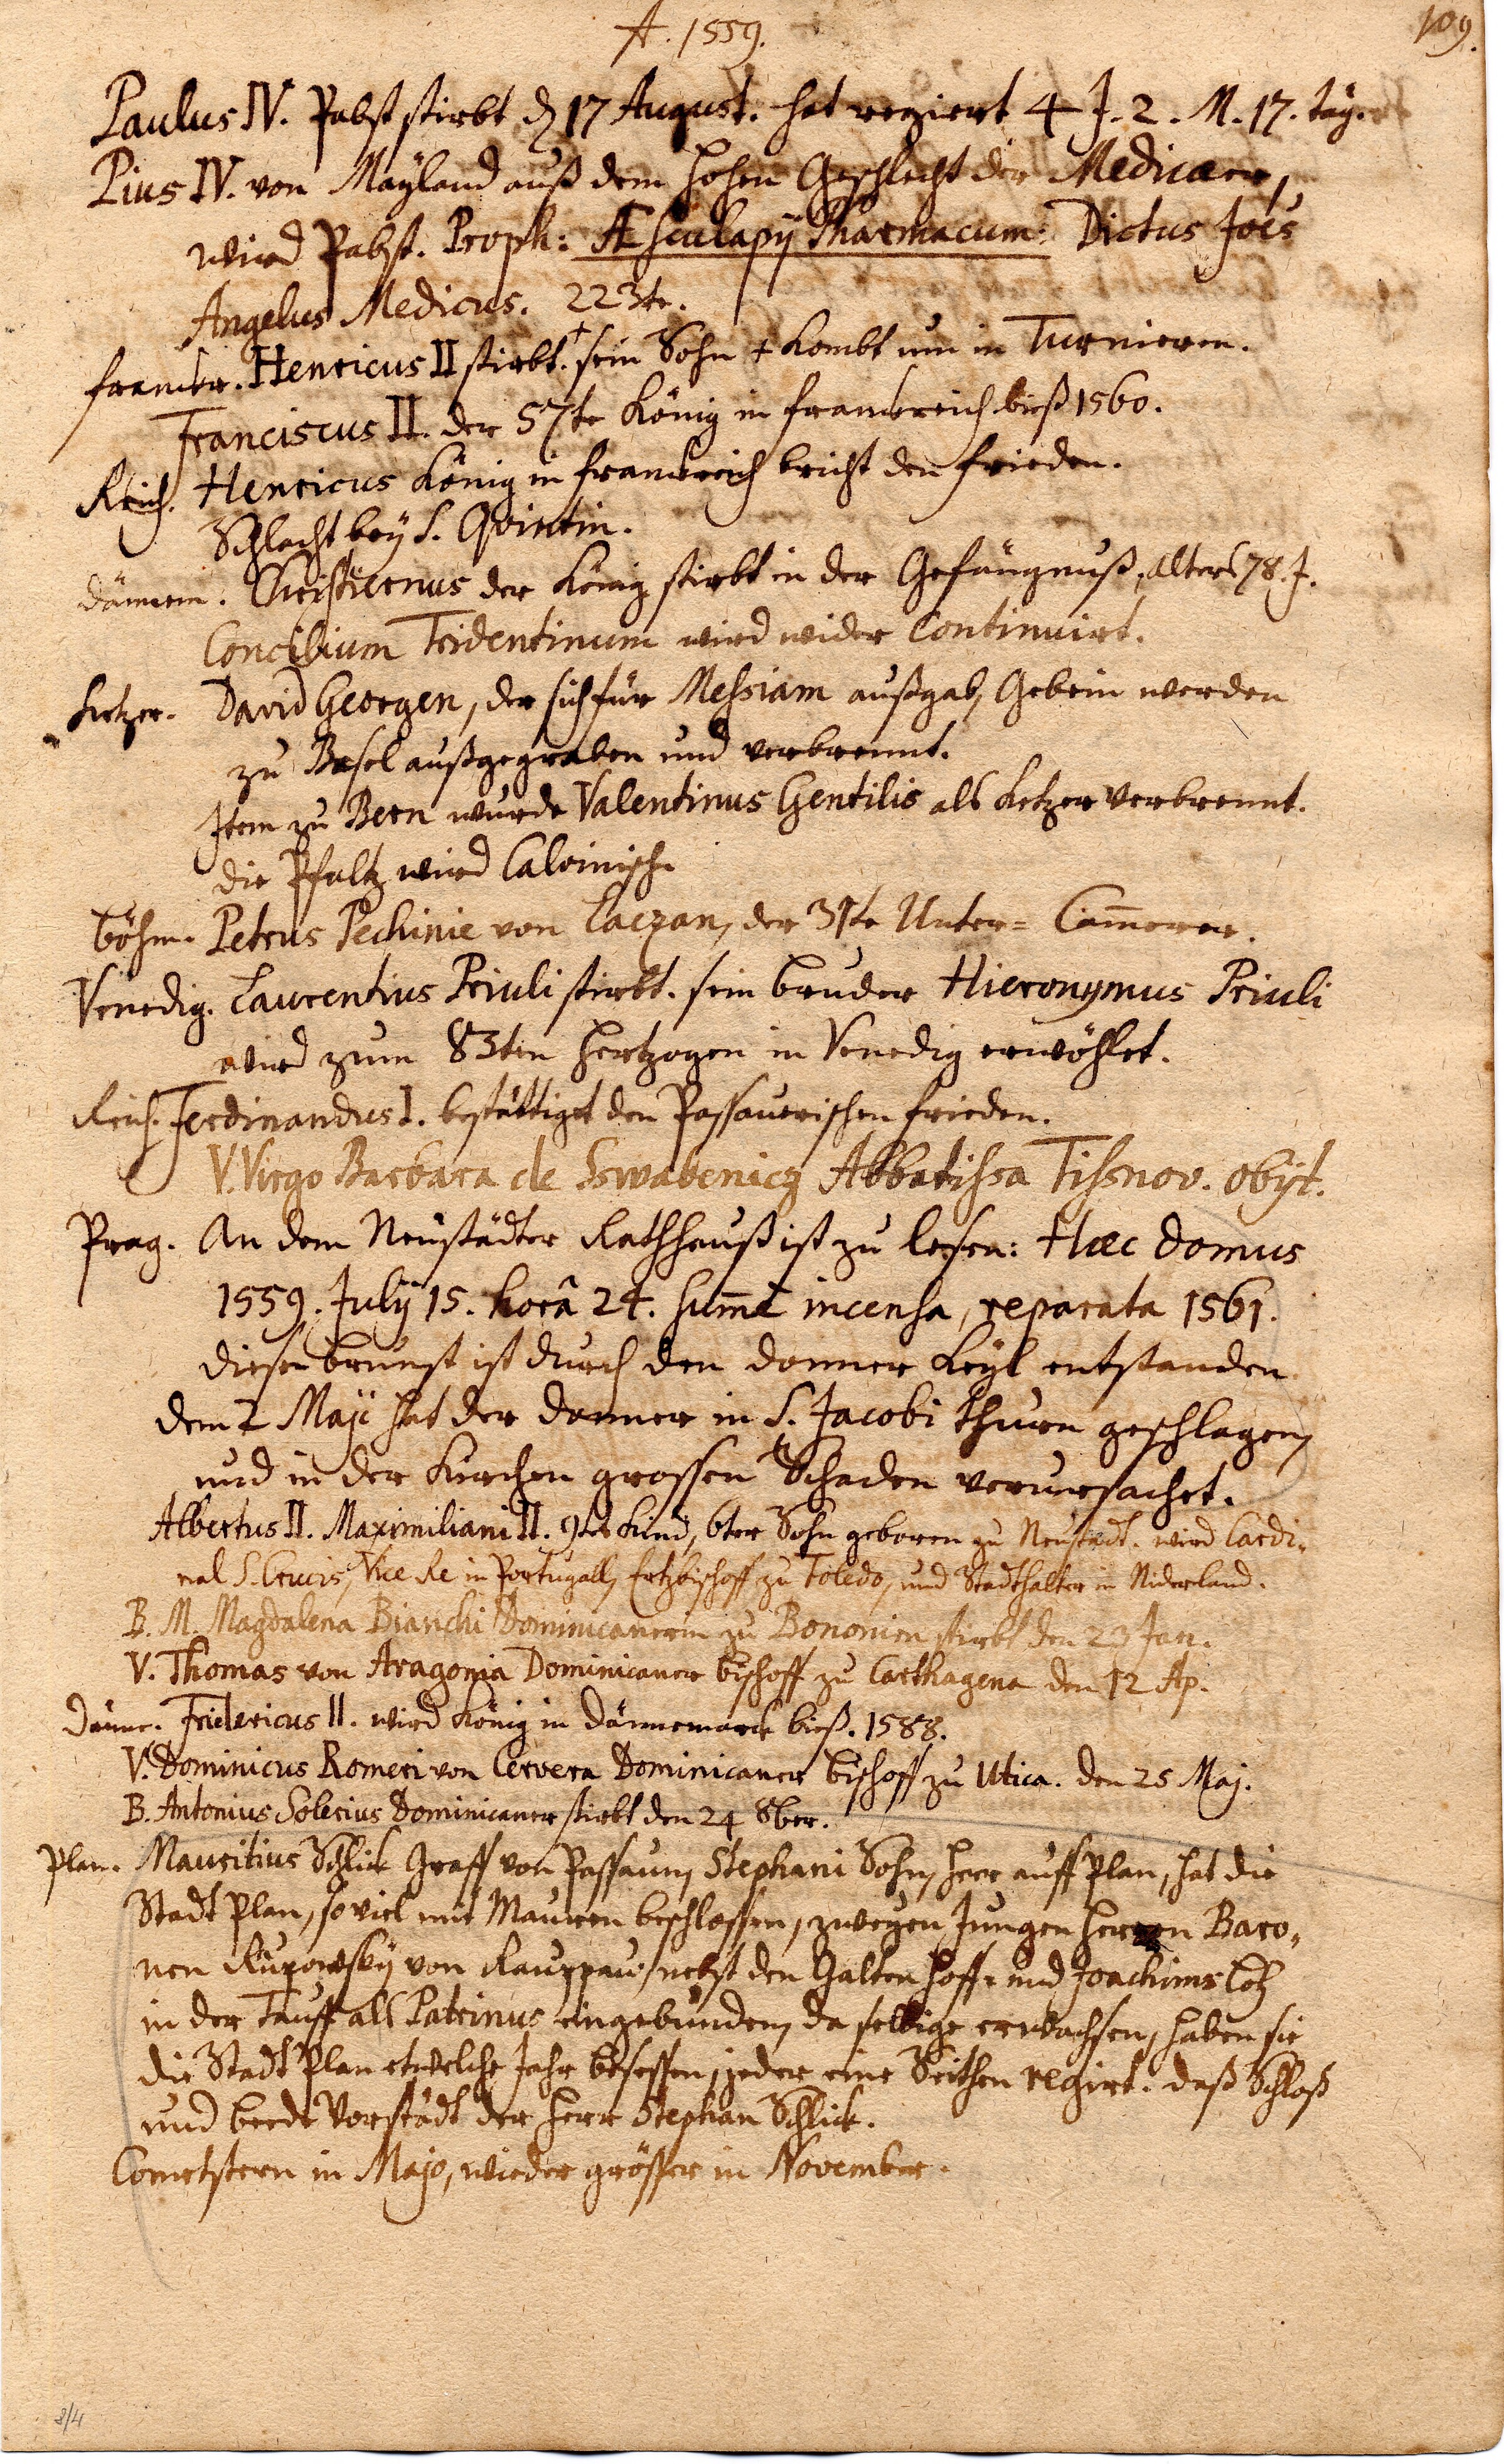 A. 1559.
109.
Paulus IV. Pabst stirbt den 17 August. hat regiert 4 J. 2. M. 17. täg.
Pius IV. von Mayland auß dem hohen Geschlecht der Medicaeer,
wird Pabst. Proph: AEsculapij Pharmacum. Dictus Joes
Angelus Medicus. 223te.
franckr. Henricus II stirbt. † sein Sohn + kombt um in Turnieren.
Franciscus II. der 57te König in franckreich bieß 1560.
Reich. Henricus König in franckreich bricht den frieden.
Schlacht bey S. Quintin.
dännem. Christiernus der König stirbt in der Gefängnuß, alters 78. J.
Concilium Tridentinum wird wider continuirt.
Ketzer. David Georgen, der sich für Messiam außgab, Gebein werden
zu Basel außgegraben und verbrennt.
Item zu Bern wurde Valentinus Gentilis als Ketzer verbrennt.
die Pfaltz wird Calvinisch.
böhm. Petrus Pechinie von Laczan, der 31te Unter= Cam̄erer.
Venedig. Laurentius Priuli stirbt. sein bruder Hieronymus Priuli
wird zum 83ten Hertzogen in Venedig erwöhlet.
Reich. Ferdinandus I. bestättiget den Passauerischen frieden.
V. Virgo Barbara de Sswabenicz Abbatissa Tissnov. obijt.
Prag. An dem Neustädter Rathhauß ist zu lesen: Haec domus
1559. Julij 15. horâ 24. sum̄e incensa, reparata 1561.
diese brunst ist durch den donner Keyl entstanden
dem 2 Maji hat der donner in S. Jacobi thurn geschlagen,
und in der Kirchen grossen Schaden verursachet.
Albertus II. Maximiliani II. 9tes Kind, 6ter Sohn geboren zu Neustadt. wird Cardi-
nal S. Crucis, Vice Re in Portugall, Ertzbischoff zu Toledo, und Stadthalter in Niderland.
B. M. Magdalena Bianchi Dominicanerin zu Bononien stirbt den 23 Jan.
V. Thomas von Aragonia Dominicaner bischoff zu Carthagena den 12 Ap.
Dänne. Fridericus II. wird König in Dännemarck bieß. 1588.
V. Dominicus Romeri von Cervera Dominicaner bischoff zu Utica. den 25 Maj.
B. Antonius Solerius Dominicaner stirbt den 24 8ber.
Plan. Mauritius Schlick Graff von Passaun, Stephani Sohn, Herr auff Plan, hat die
Stadt Plan, so viel mit Mauren beschlossen, zweyen Jungen Herren Baro-
nen von nebst den Galtenhoff und Joachims
in der Tauff als Patrinus eingebunden, da selbige erwachsen, haben sie
die Stadt Plan etwelche Jahr besessen, jeder eine Seithen regirt. daß Schloß
und beede Vorstädt der Herr Stephan Schlick.
Cometstern in Majo, wieder grösser in November.
8/4